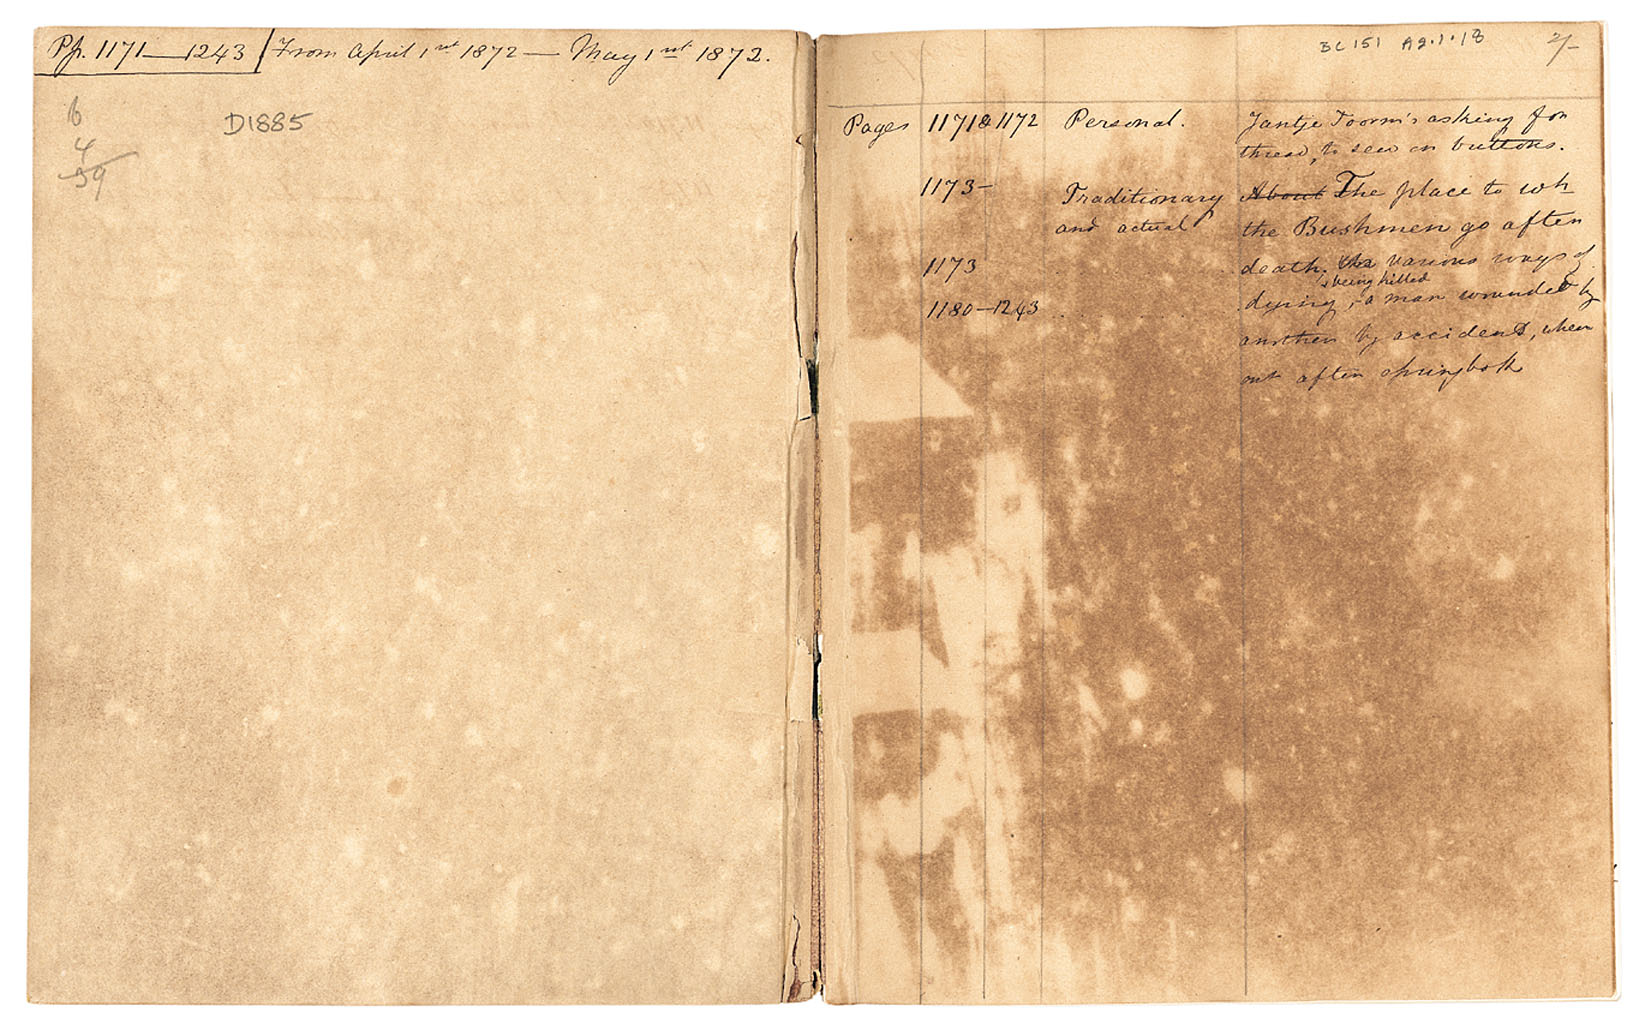 Pp. 1171—1243 From April 1st 1872 — May 1st 1872.
D1885
6
4
59
BC 151 A2.1.18
2/-
Pages 1171 & 1172 Personal. Jantje Toorn's asking for
thread, to sew on buttons.
1173- Traditionary About The place to wh
and actual the Bushmen go after
1173 death. the various ways of
& being killed
dying, - a man wounded by
1180-1243
another by accident, when
out after springbok